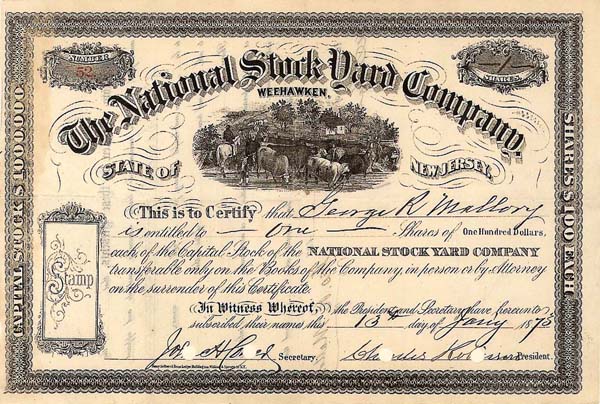 NUMBER
52
SHARES
1
The National Stock Yard Company,
WEEHAWKEN.
STATE OF NEW JERSEY.
CAPITAL STOCK $1,000,000
SHARES $100 EACH
Stamp
This is to Certify that George R. Mallory
is entitled to One Shares of One Hundred Dollars,
each, of the Capital Stock of the NATIONAL STOCK YARD COMPANY
transferable only on the Books of the Company, in person or by Attorney
on the surrender of this Certificate.
In Witness Whereof, the President and Secretary have hereunto
subscribed their names, this 13th day of Jany 187
Jos Secretary.
Charles President.